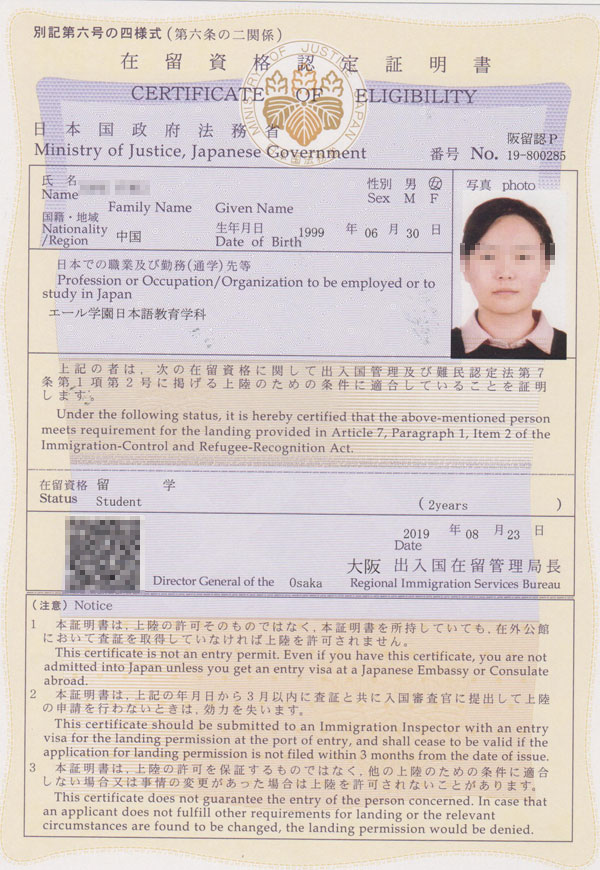 別記第六号の四様式(第六条の二関係)
在留資格認定証明書
CERTIFICATE OF ELIGIBILITY
MINISTRY OF JUSTICE JAPAN
日本国政府法務省
Ministry of Justice, Japanese Government
阪留認P
番号 No. 19-800285
氏名
Name
Family Name Given Name
性別 男 女
Sex M F
写真 photo
国籍・地域
Nationality
/Region 中国
生年月日
Date of Birth 1999 年 06 月 30 日
日本での職業及び勤務(通学)先等
Profession or Occupation/Organization to be employed or to
study in Japan
エール学園日本語教育学科
上記の者は,次の在留資格に関して出入国管理及び難民認定法第7
条第1項第2号に掲げる上陸のための条件に適合していることを証明
します。
Under the following status, it is hereby certified that the above-mentioned person
meets requirement for the landing provided in Article 7, Paragraph 1, Item 2 of the
Immigration-Control and Refugee-Recognition Act.
在留資格 留 学
Status Student
( 2years )
2019 年 08 月 23 日
Date
大阪 出入国在留管理局長
Director General of the Osaka Regional Immigration Services Bureau
(注意) Notice
1 本証明書は,上陸の許可そのものではなく,本証明書を所持していても,在外公館
において査証を取得していなければ上陸を許可されません。
This certificate is not an entry permit. Even if you have this certificate, you are not
admitted into Japan unless you get an entry visa at a Japanese Embassy or Consulate
abroad.
2 本証明書は,上記の年月日から3月以内に査証と共に入国審査官に提出して上陸
の申請を行わないときは,効力を失います。
This certificate should be submitted to an Immigration Inspector with an entry
visa for the landing permission at the port of entry, and shall cease to be valid if the
application for landing permission is not filed within 3 months from the date of issue.
3 本証明書は,上陸の許可を保証するものではなく,他の上陸のための条件に適合
しない場合又は事情の変更があった場合は上陸を許可されないことがあります。
This certificate does not guarantee the entry of the person concerned. In case that
an applicant does not fulfill other requirements for landing or the relevant
circumstances are found to be changed, the landing permission would be denied.